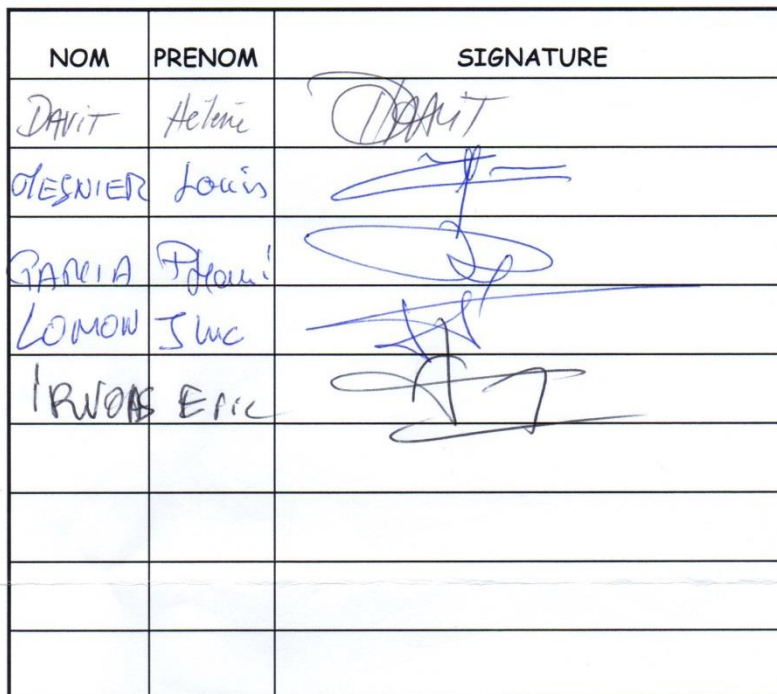 NOM PRENOM SIGNATURE
DAVIT Hélène DAVIT
MESNIER Louis
GARCIA
LOMON J Luc
IRVOAS Eric